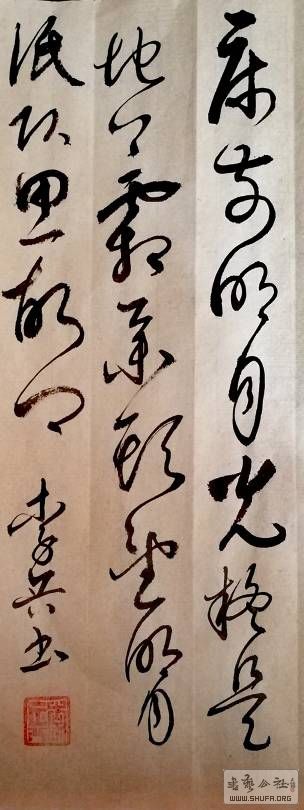 床前明月光疑是
地上霜舉頭望明月
低頭思故鄉 李兵书
书艺公社
WWW.SHUFA.ORG